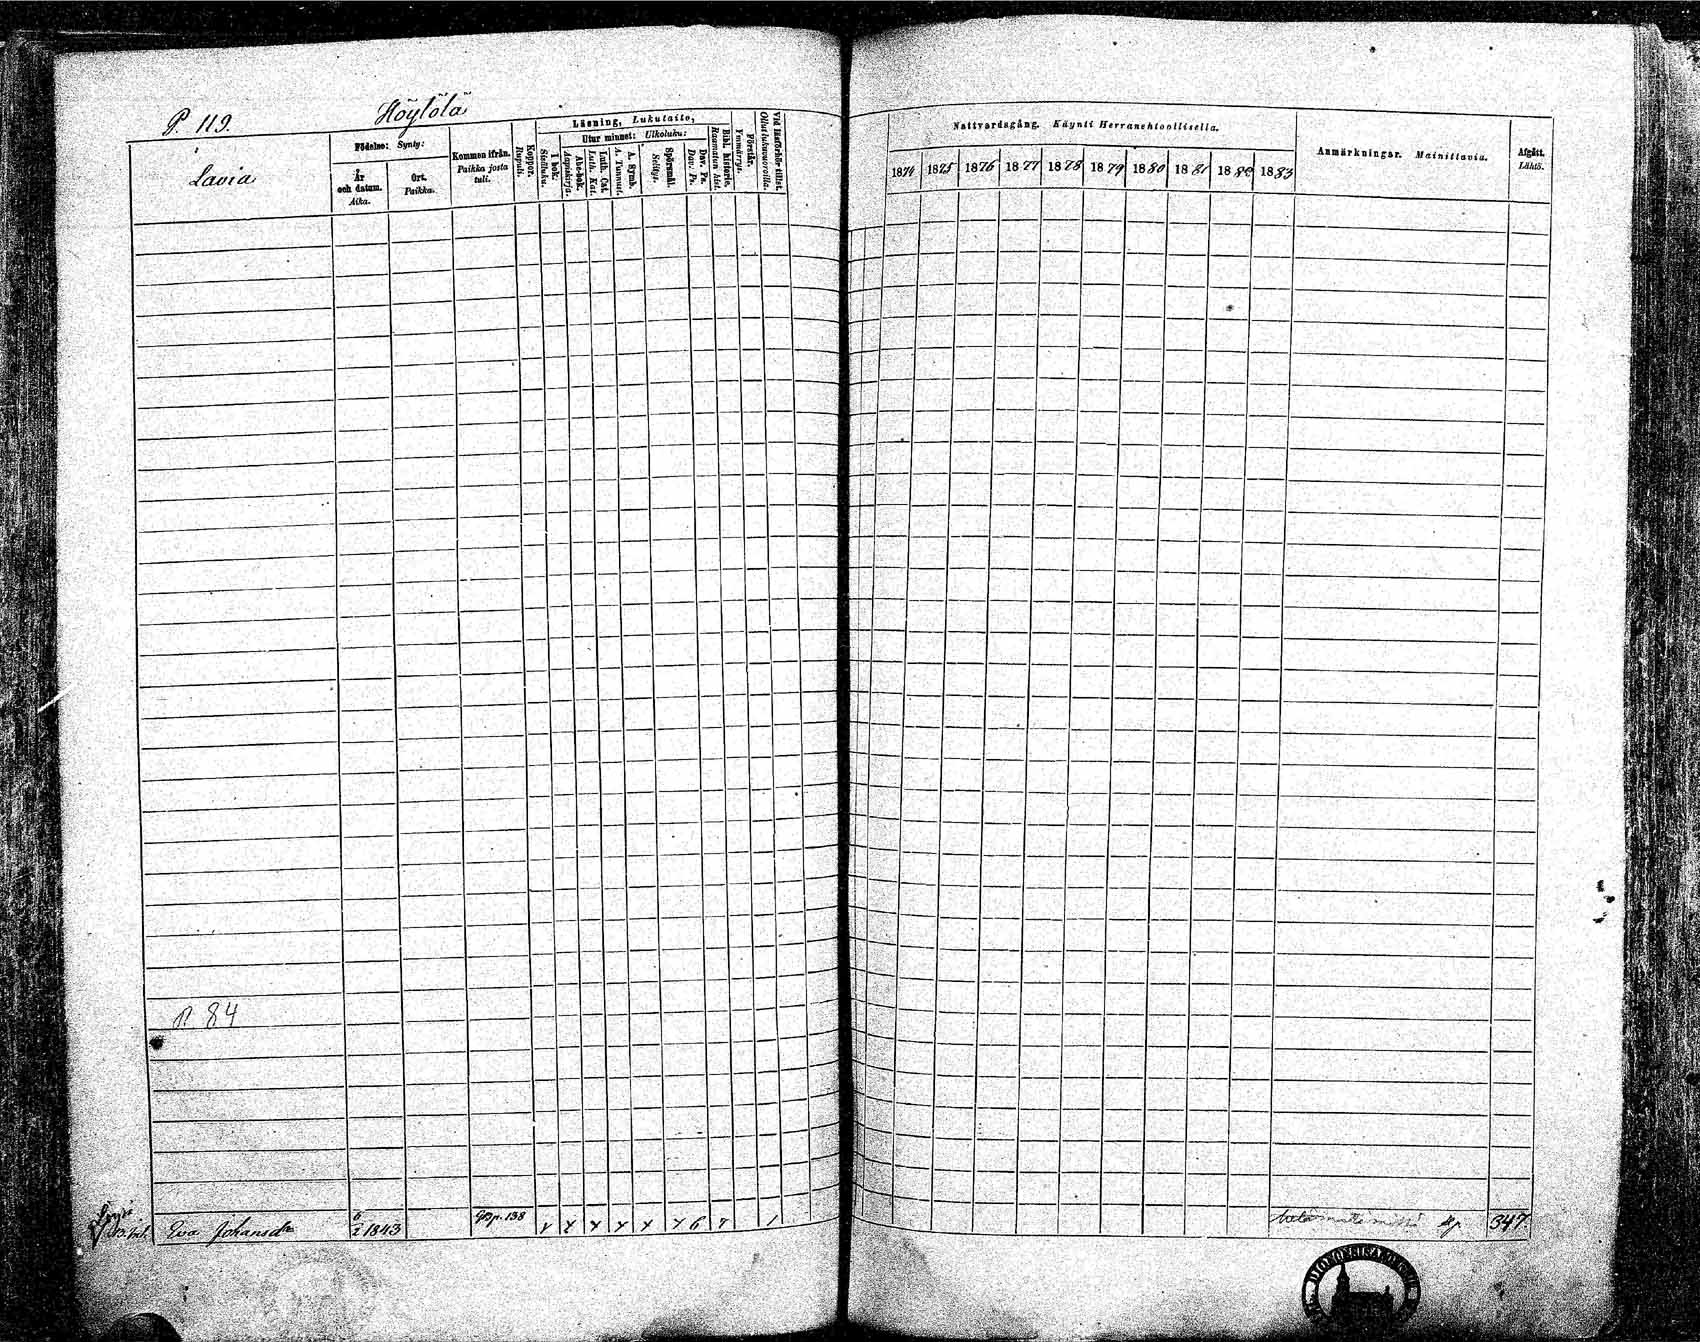 P. 119.
Höytölä
Lavia
Födelse: Synty:
År och datum. Aika.
Ort. Paikka.
Kommen ifrån. Paikka josta tuli.
Koppor. Rupuli.
Läsning, Lukutaito,
I bok. Sisäluku.
Utur minnet: Ulkoluku:
Abc-bok. Aapiskirja.
Luth. Cat. Luth. Kat.
A. Symb. A. Tunnust.
Spörsmål. Selitys.
Dav. Ps. Dav. Ps.
Bibl. historie. Raamatun hist.
Förstår. Ymmärrys.
Vid läsförhör tillst. Ollut lukuvuoroilla.
Nattvardsgång. Käynti Herranehtoollisella.
1874 1875 1876 1877 1878 1879 1880 1881 1882 1883
Anmärkningar. Mainittavia.
Afgått. Lähtö.
P. 84
Eva Johansdr 6/2 1843 p. 138 6 1 347